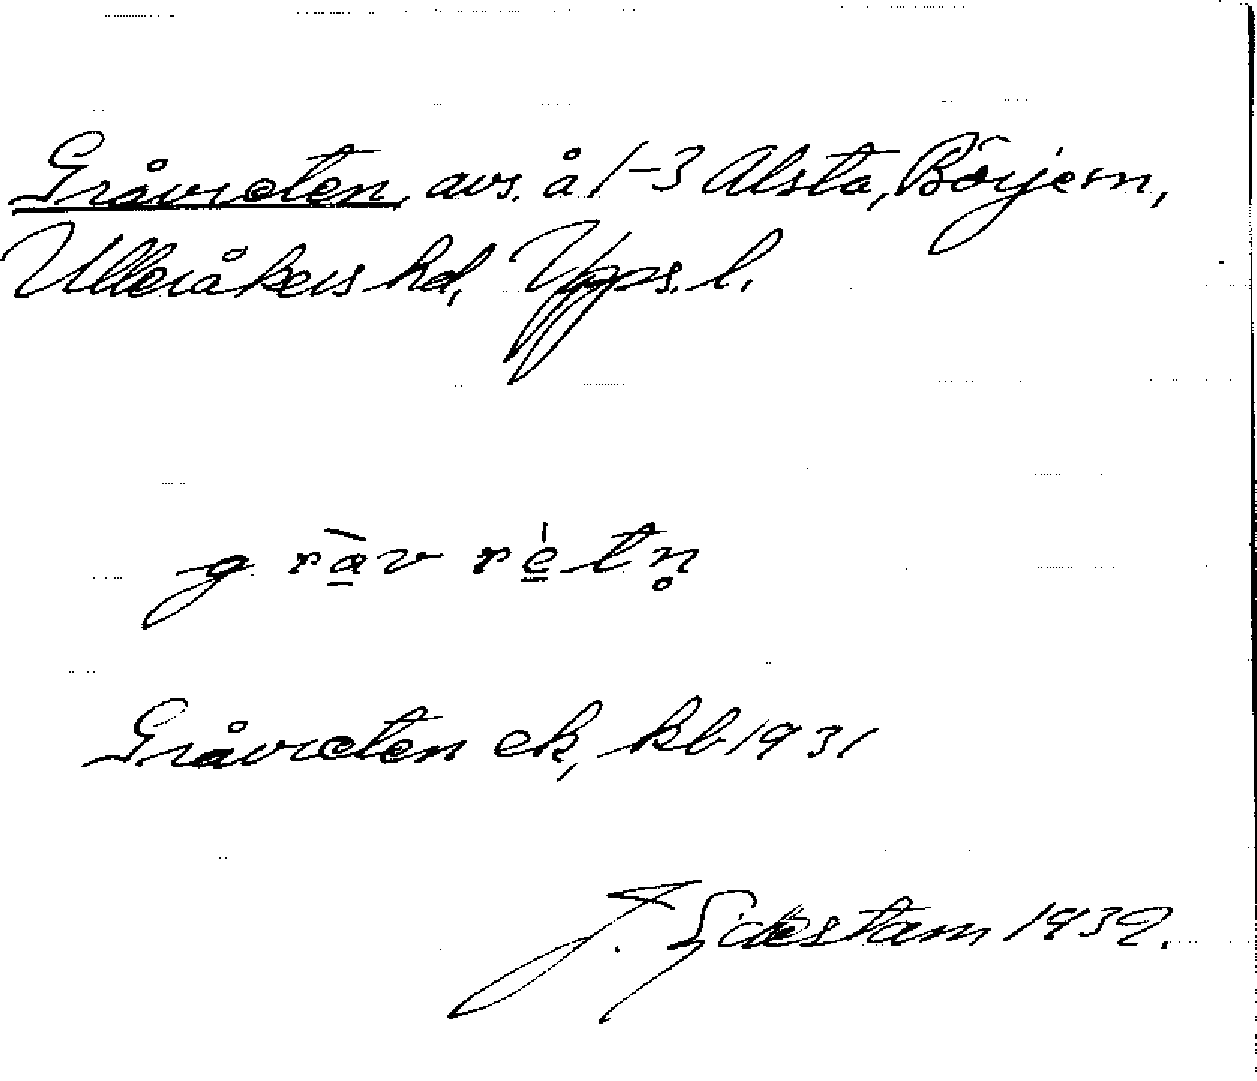 Gråvreten, avs. å 1-3 Alsta, Börjem,
Ulleråkers hd, Upps. l.
g rà̱v ré̱tn̥
Gråvreten ek, kb 1931
J. Sidestam 1932.